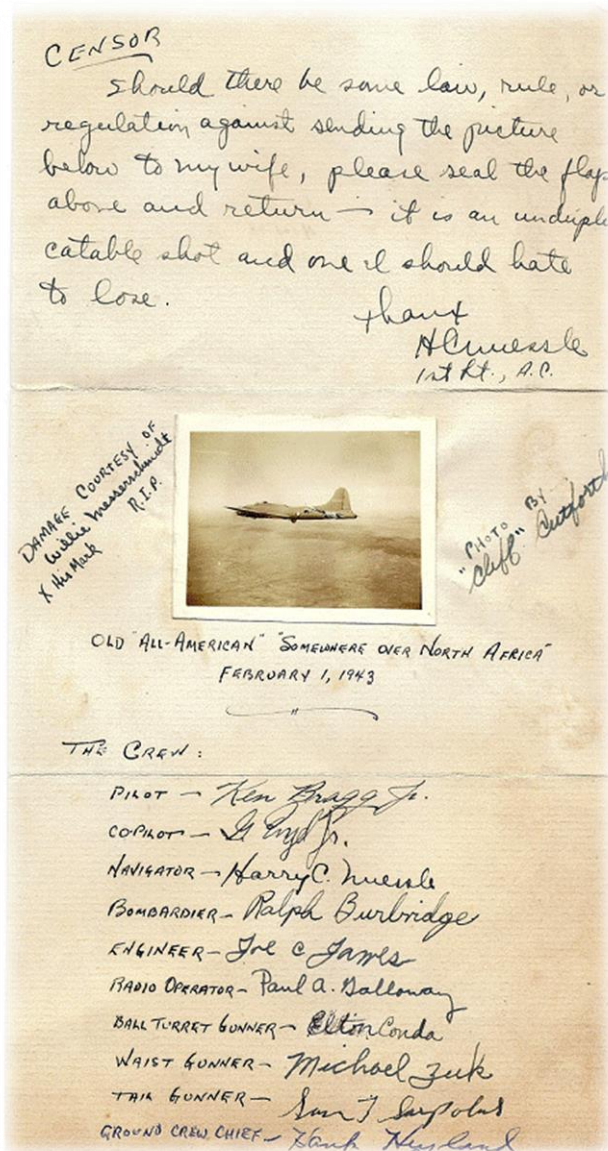 CENSOR
Should there be some law, rule, or
regulation against sending the picture
below to my wife, please seal the flap
above and return — it is an undupli
catable shot and one I should hate
to lose.
Thanx
HCNuessle
1st Lt., A.C.
DAMAGE COURTESY OF
Willie Messerschmidt
R.I.P.
X His Mark
"PHOTO BY
Cliff" Cutforth
OLD "ALL-AMERICAN" "SOMEWHERE OVER NORTH AFRICA"
FEBRUARY 1, 1943
THE CREW:
PILOT — Ken Bragg Jr.
COPILOT — G Jr.
NAVIGATOR — Harry C. Nuessle
BOMBARDIER — Ralph Burbridge
ENGINEER — Joe C James
RADIO OPERATOR — Paul A. Galloway
BALL TURRET GUNNER — Elton Conda
WAIST GUNNER — Michael Zuk
TAIL GUNNER — Sam T Sarpolus
GROUND CREW CHIEF — Hank Hyland